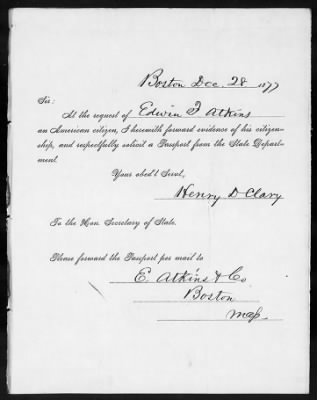 Boston Dec. 28 1877
Sir:
At the request of Edwin F Atkins
an American citizen, I herewith forward evidence of his citizen-
ship, and respectfully solicit a Passport from the State Depart-
ment.
Your obed't Servt,
Henry D Clary
To the Hon. Secretary of State.
Please forward the Passport per mail to
E. Atkins & Co
Boston
Mass